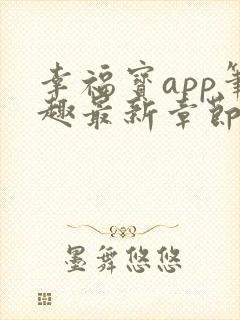 幸福寶app筆
趣最新章節
墨舞悠悠